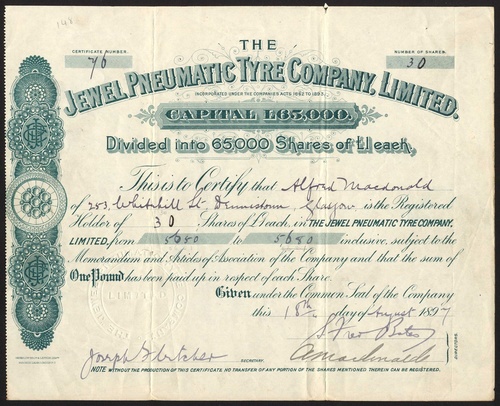 THE
CERTIFICATE NUMBER.
76
NUMBER OF SHARES.
30
JEWEL PNEUMATIC TYRE COMPANY, LIMITED.
INCORPORATED UNDER THE COMPANIES ACTS 1862 TO 1893.
CAPITAL £65,000.
Divided into 65,000 Shares of £1 each,
This is to Certify that Alfred Macdonald
of 253, Whitehill St, Dennistoun, Glasgow is the Registered
Holder of 30 Shares of £1 each, in THE JEWEL PNEUMATIC TYRE COMPANY,
LIMITED, from to inclusive, subject to the
Memorandum and Articles of Association of the Company and that the sum of
One Pound has been paid up in respect of each Share.
Given under the Common Seal of the Company
this 18th day of August 1897
Bates
DIRECTORS.
Joseph Fletcher
SECRETARY.
NOTE WITHOUT THE PRODUCTION OF THIS CERTIFICATE, NO TRANSFER OF ANY PORTION OF THE SHARES MENTIONED THEREIN CAN BE REGISTERED.